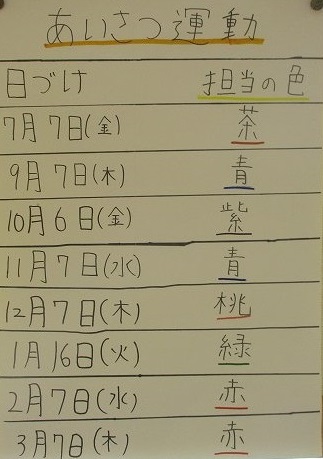 あいさつ運動
日づけ 担当の色
7月7日(金) 茶
9月7日(木) 青
10月6日(金) 紫
11月7日(水) 青
12月7日(木) 桃
1月16日(火) 緑
2月7日(水) 赤
3月7日(木) 赤